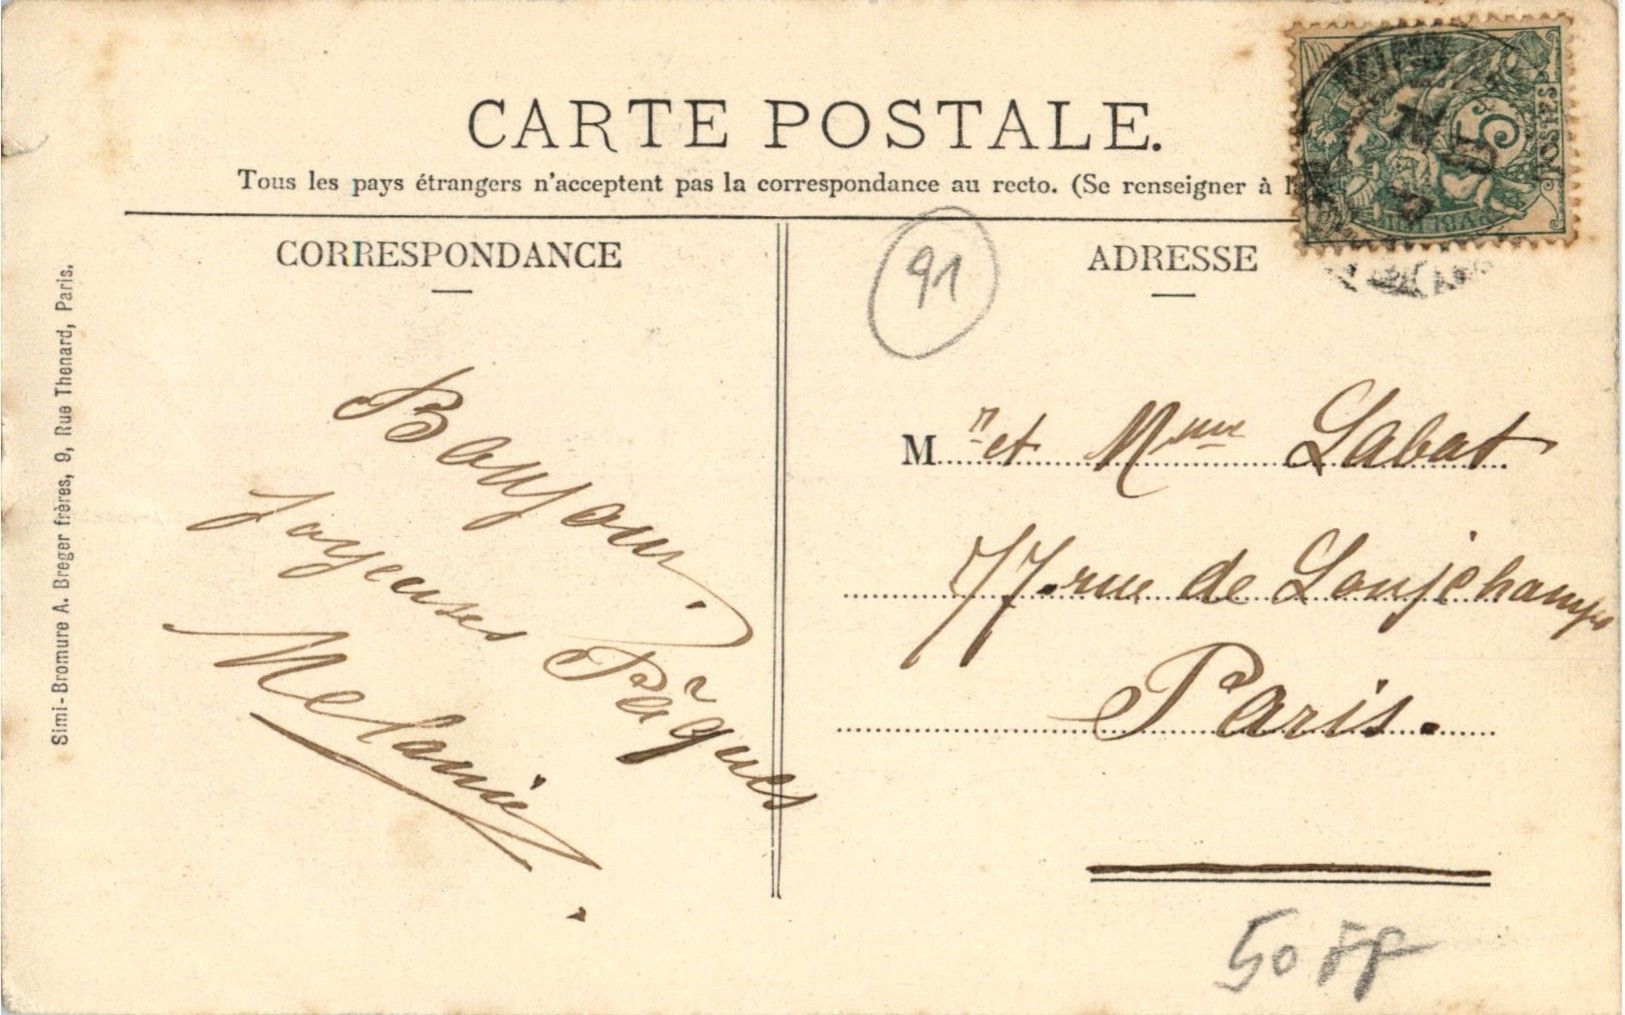 CARTE POSTALE.
Tous les pays étrangers n'acceptent pas la correspondance au recto. (Se renseigner à
CORRESPONDANCE
ADRESSE
91
Bonjour.
Joyeuses Pâques
Melanie
Mr et Mme Labat
77 rue de Lonjchamps
Paris.
50 FF
Simi-Bromure A. Breger frères, 9, Rue Thenard, Paris.
5
POSTES